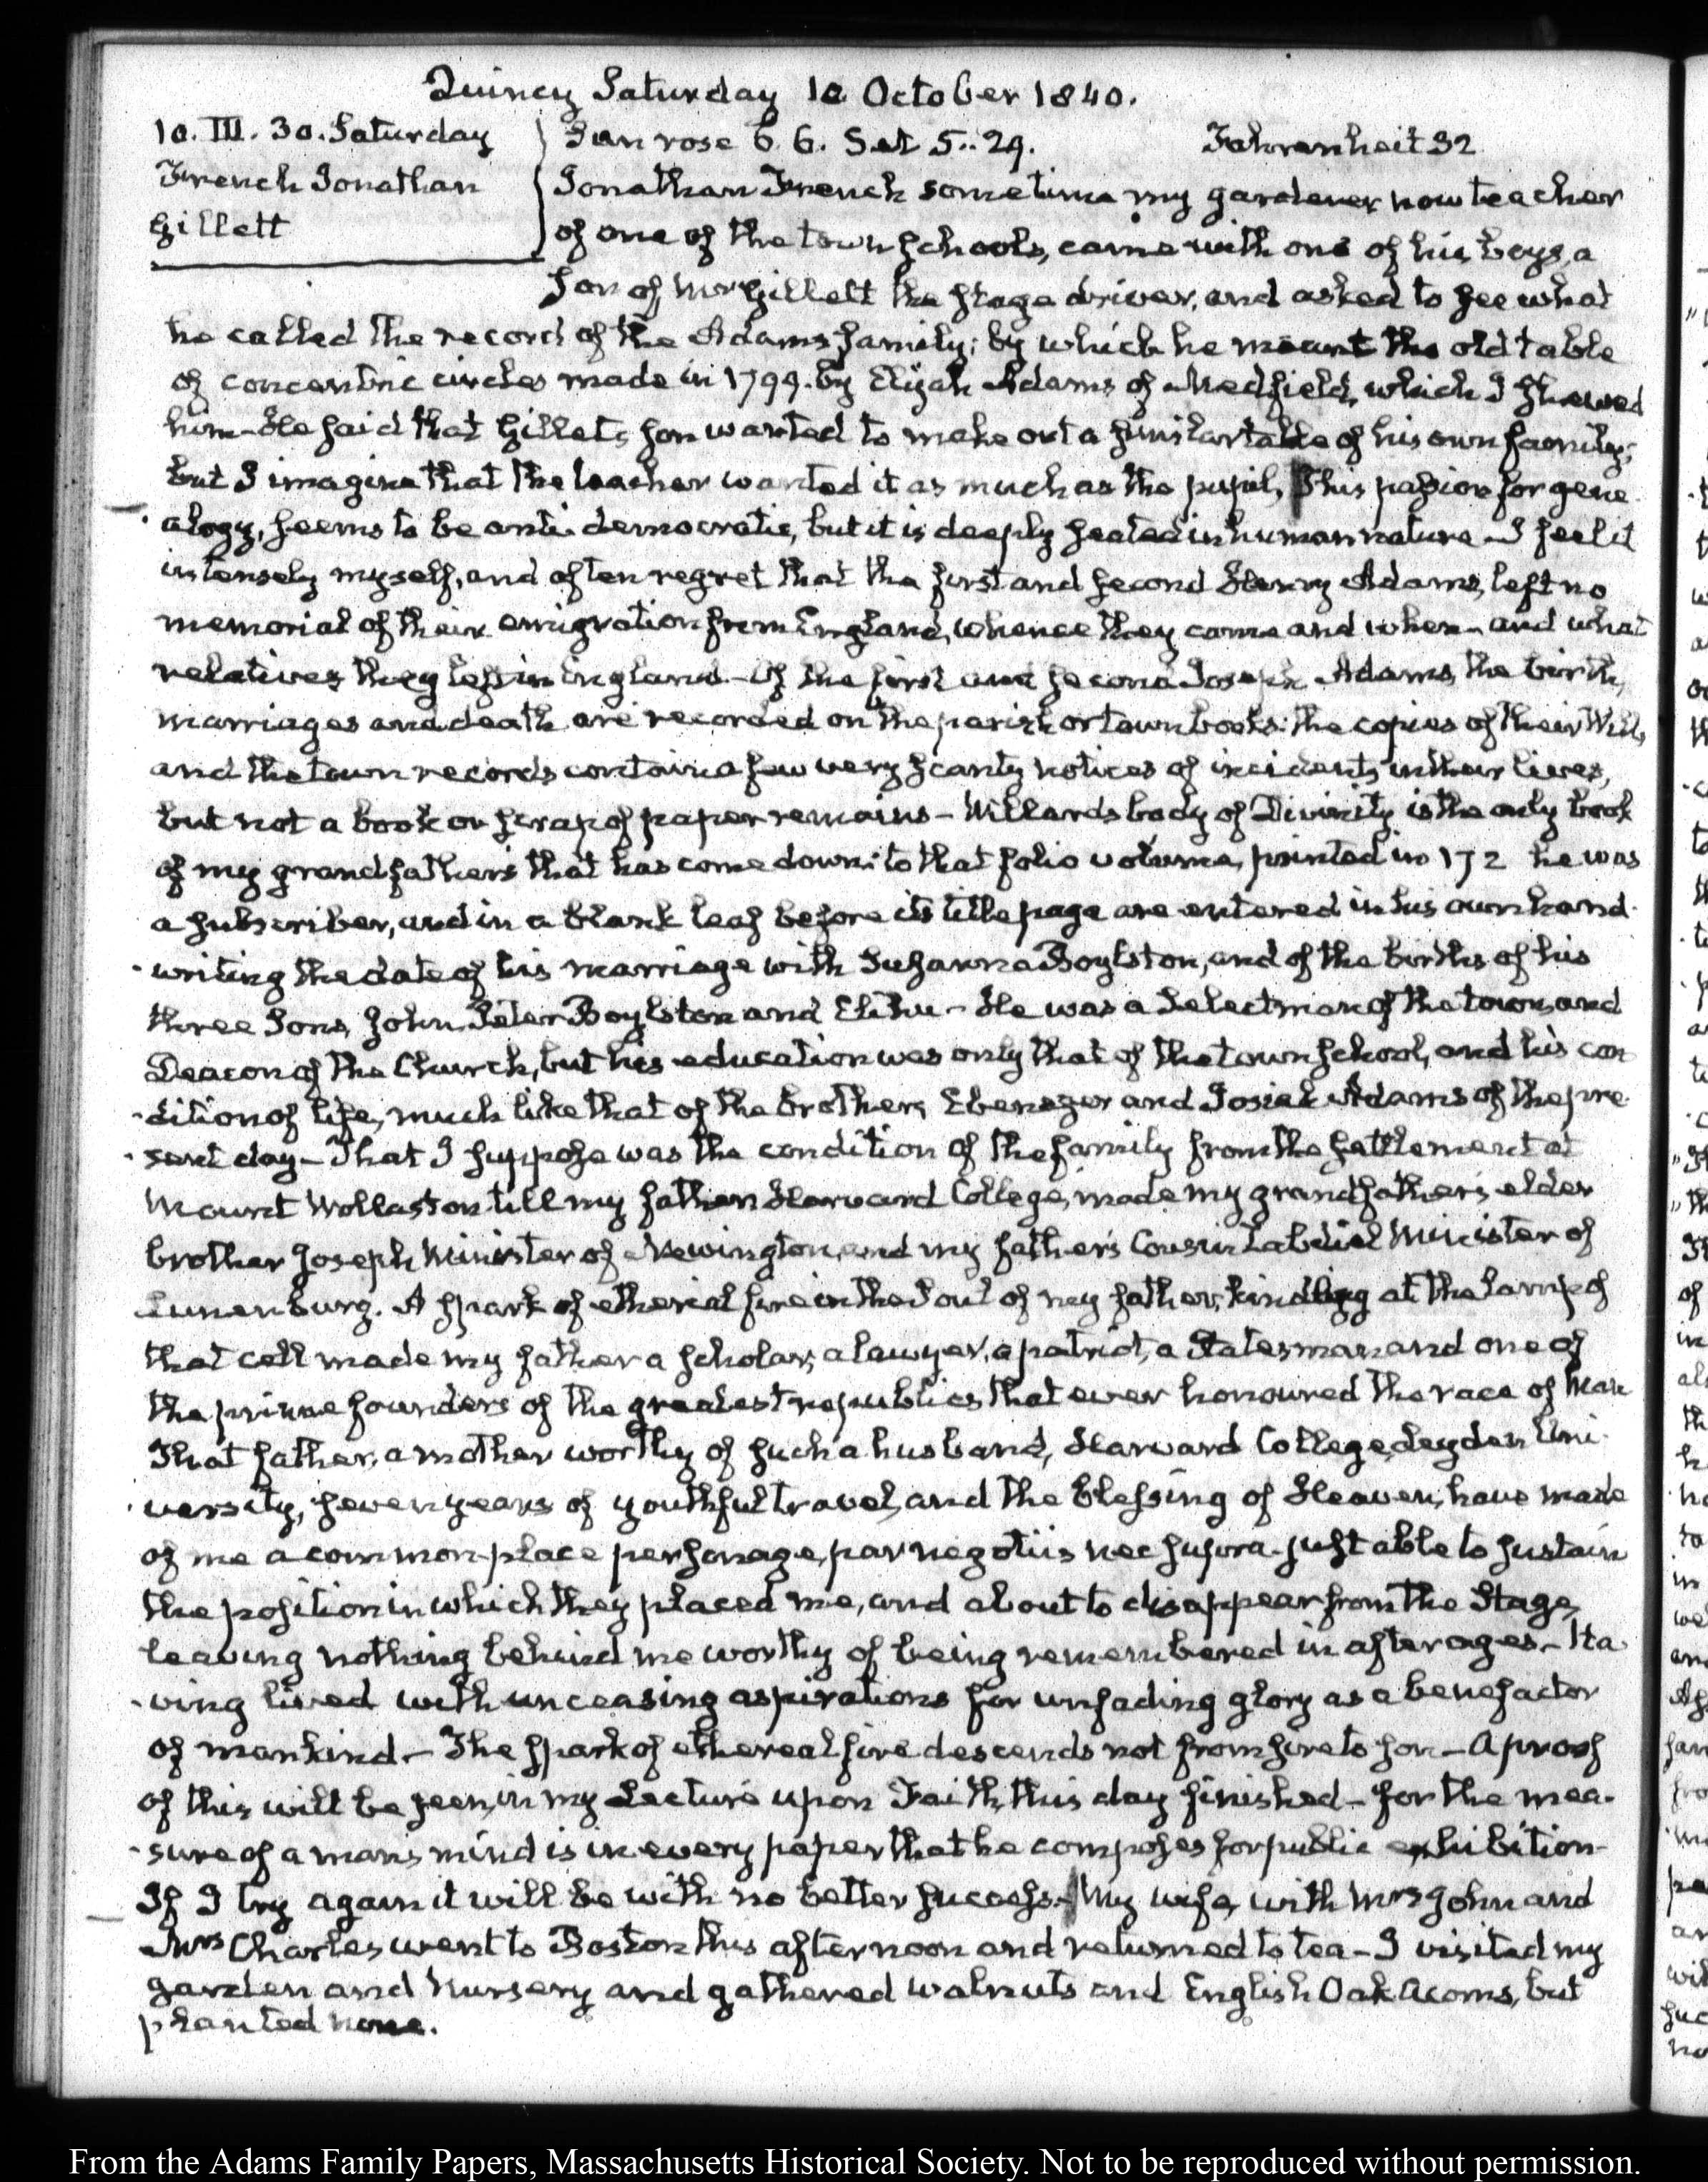 Quincy Saturday 10 October 1840.
10. III. 30. Saturday
French Jonathan
Gillett
Sun rose 6. 6. Set 5..29. Fahrenheit 32
Jonathan French sometime my gardener now teacher
of one of the town schools, came with one of his boys, a
Son of Mr Gillett the stage driver, and asked to see what
he called the record of the Adams family; by which he meant the old table
of concentric circles made in 1799. by Elijah Adams of Medfield, which I shewed
him - He said that Gillett's son wanted to make out a similar table of his own family;
but I imagine that the teacher wanted it as much as the pupil, This passion for gene
alogy, seems to be anti-democratic, but it is deeply seated in human nature - I feel it
intensely myself, and often regret that the first and second Henry Adams, left no
memorial of their emigration from England, whence they came and when - and what
relatives they left in England. - Of the first and second Joseph Adams, the birth,
marriages and death are recorded on the parish or town books: the copies of their Wills,
and the town records contain a few very scanty notices of incidents in their lives,
but not a book or scrap of paper remains - Willards body of Divinity is the only book
of my grandfather's that has come down: to that folio volume, printed in 172 he was
a subscriber, and in a blank leaf before its title page are entered in his own hand-
writing the date of his marriage with Susanna Boylston, and of the births of his
three Sons, John, Peter Boylston and Elihu - He was a Selectman of the town, and
Deacon of the Church, but his education was only that of the town school, and his con
-dition of life, much like that of the brothers Ebenezer and Josiah Adams of the pre-
-sent day - That I suppose was the condition of the family from the settlement at
Mount Wollaston till my father Harvard College, made my grandfather's elder
brother Joseph Minister of Newington, and my father's Cousin Zabdiel Minister of
Lunenburg. A spark of etherial fire in the Soul of my father, kindling at the Lamp of
that cell made my father a scholar, a lawyer, a patriot, a Statesman and one of
the prime founders of the greatest republics that ever honoured the race of Man
That father, a mother worthy of such a husband, Harward College, Leyden Uni-
-versity, seven years of youthful travel, and the blessing of Heaven, have made
of me a common-place personage, par negotiis nec supra - just able to sustain
the position in which they placed me, and about to disappear from the Stage,
leaving nothing behind me worthy of being remembered in after ages. - Ha
-ving lived with unceasing aspirations for unfading glory as a benefactor
of mankind - The spark of ethereal fire descends not from sire to son - A proof
of this will be seen, in my Lecture upon Faith, this day finished - for the mea-
-sure of a man's mind is in every paper that he composes for public exhibition -
If I try again it will be with no better success. - My wife, with Mrs John and
Mrs Charles went to Boston this afternoon and returned to tea - I visited my
garden and Nursery and gathered walnuts and English Oak Acorns, but
planted none.
From the Adams Family Papers, Massachusetts Historical Society. Not to be reproduced without permission.